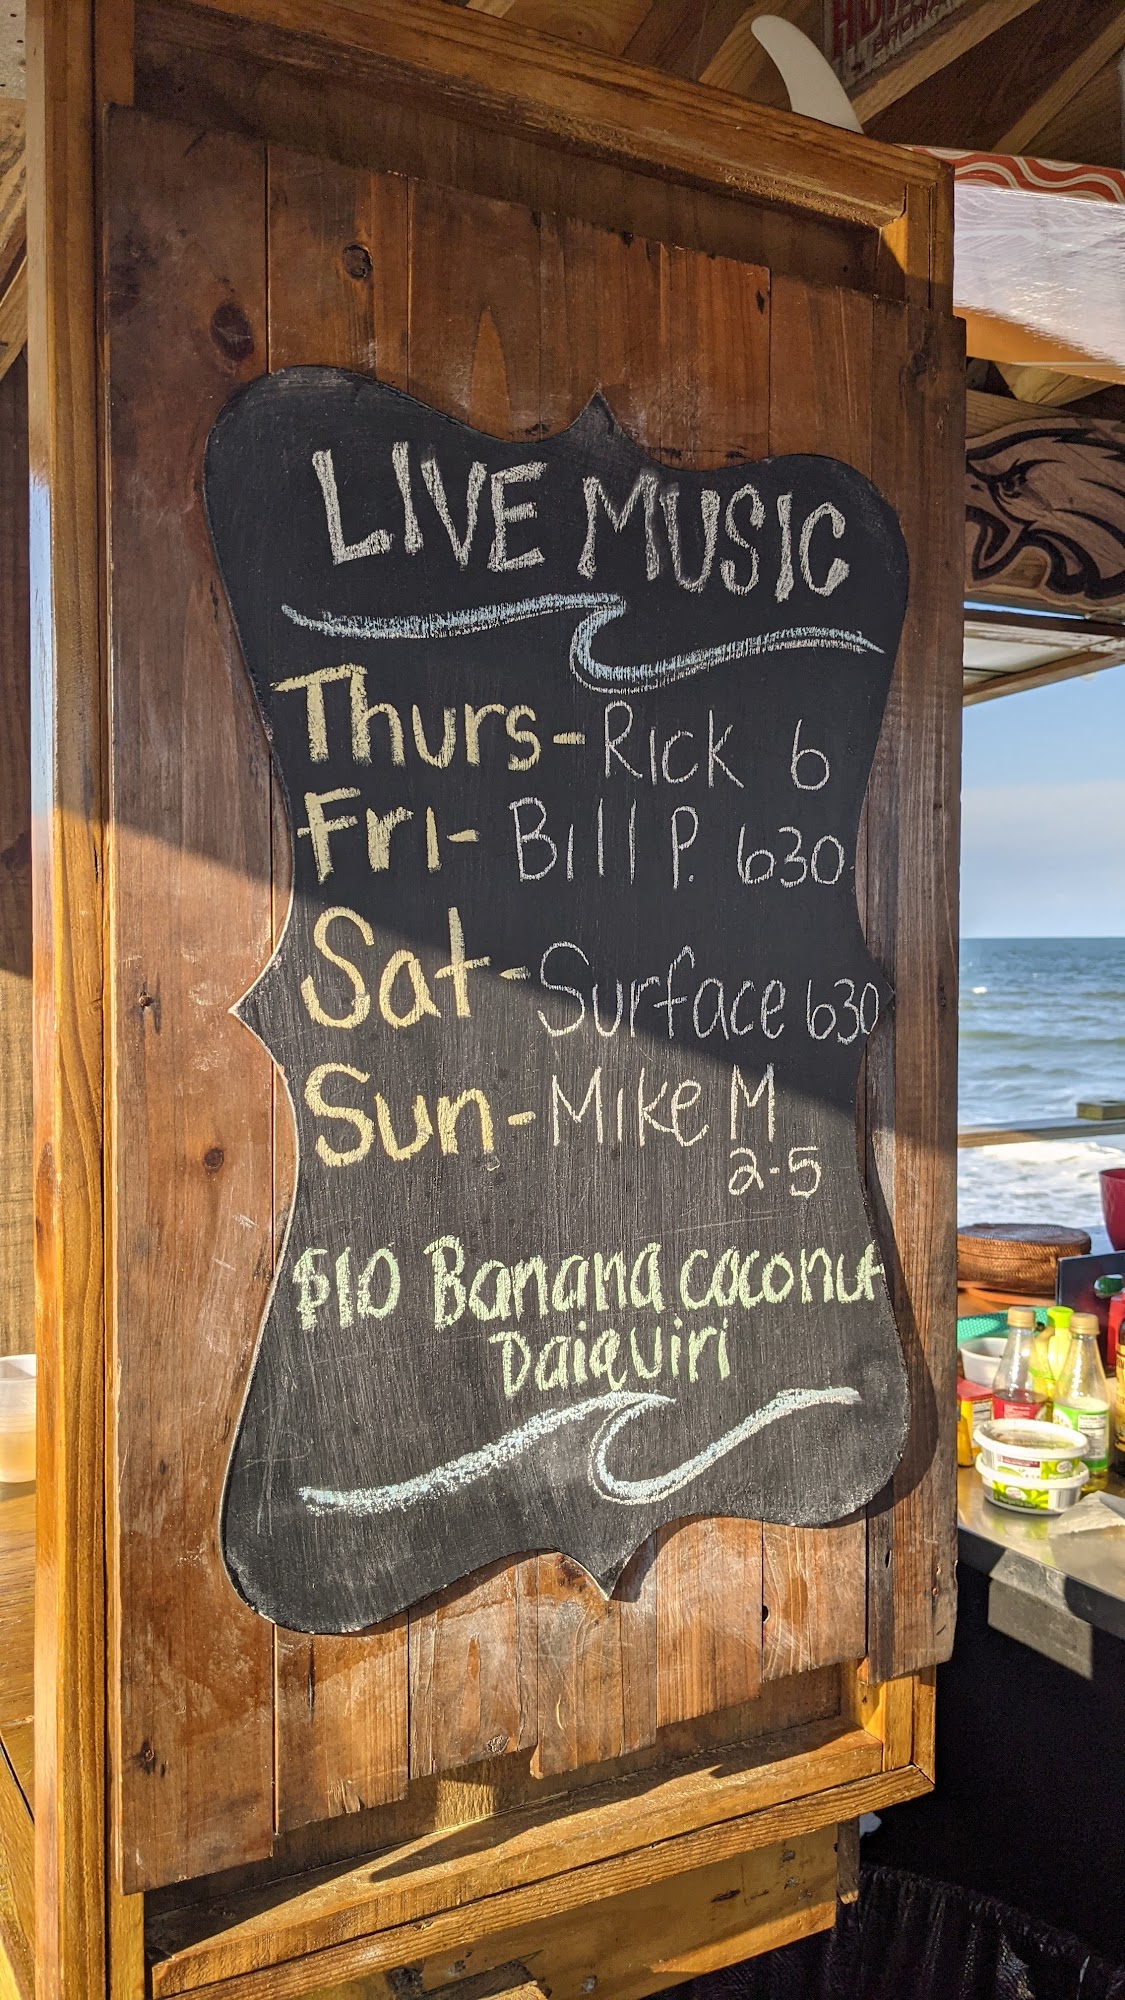 LIVE MUSIC
Thurs- Rick 6
Fri- Bill P. 630
Sat- Surface 630
Sun- Mike M
2-5
$10 Banana coconut
Daiquiri